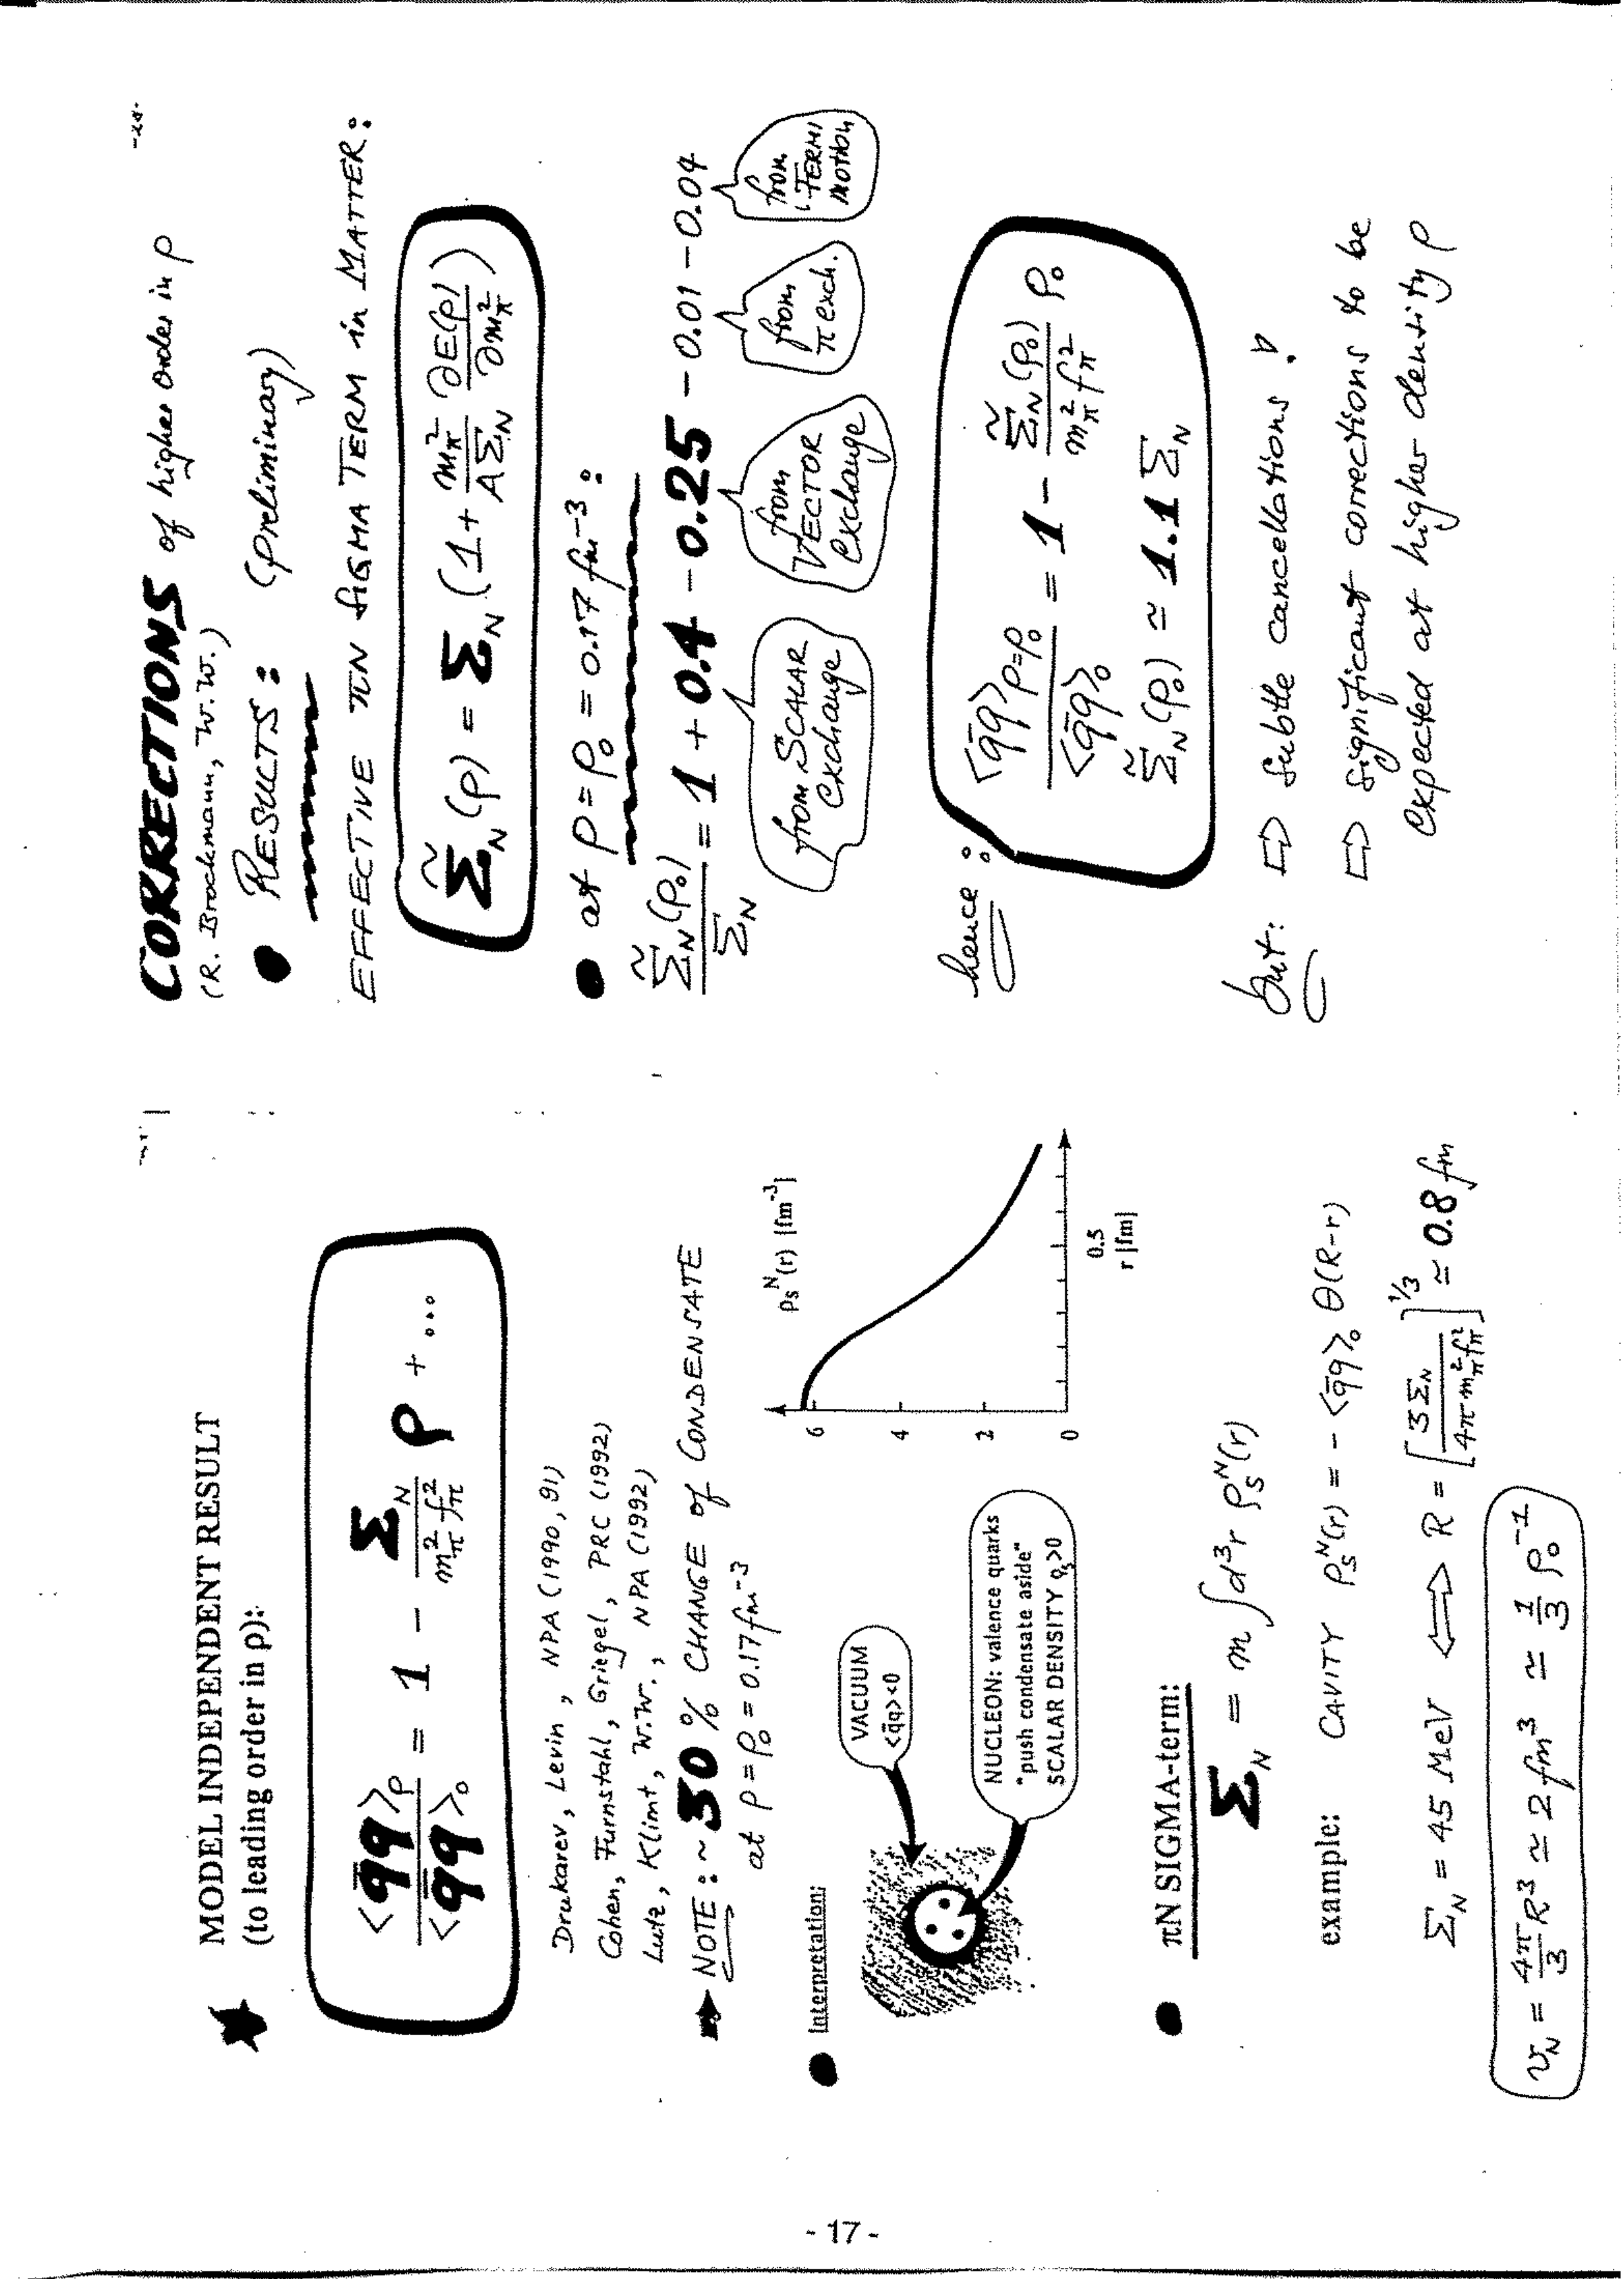 MODEL INDEPENDENT RESULT
(to leading order in ρ):
<q̄q>ρ / <q̄q>₀ = 1 - Σ_N / (m_π² f_π²) ρ + ...
Drukarev, Levin, NPA (1990, 91)
Cohen, Furnstahl, Griegel, PRC (1992)
Lutz, Klimt, W.W., NPA (1992)
NOTE: ~ 30 % CHANGE of CONDENSATE
at ρ = ρ₀ = 0.17 fm⁻³
Interpretation:
VACUUM
<q̄q> < 0
NUCLEON: valence quarks
"push condensate aside"
SCALAR DENSITY ρ_s>0
ρ_s^N(r) [fm⁻³]
6
4
2
0
0.5
r [fm]
πN SIGMA-term:
Σ_N = m ∫d³r ρ_s^N(r)
example: CAVITY ρ_s^N(r) = - <q̄q>₀ θ(R-r)
Σ_N = 45 MeV ⟺ R = [3 Σ_N / (4π m_π² f_π²)]^{1/3} ≃ 0.8 fm
v_N = 4π/3 R³ ≃ 2 fm³ ≃ 1/3 ρ₀⁻¹
CORRECTIONS of higher order in ρ
(R. Brockmann, W.W.)
RESULTS: (preliminary)
EFFECTIVE πN SIGMA TERM in MATTER:
Σ̃_N(ρ) = Σ_N (1 + m_π² / (A Σ_N) ∂E(ρ) / ∂m_π²)
at ρ = ρ₀ = 0.17 fm⁻³:
Σ̃_N(ρ₀) / Σ_N = 1 + 0.4 - 0.25 - 0.01 - 0.04
from SCALAR
exchange
from
VECTOR
exchange
from
π exch.
from
FERMI
motion
hence:
<q̄q>ρ=ρ₀ / <q̄q>₀ = 1 - Σ̃_N(ρ₀) / (m_π² f_π²) ρ₀
Σ̃_N(ρ₀) ≃ 1.1 Σ_N
but: ⇒ subtle cancellations !
⇒ significant corrections to be
expected at higher density ρ
- 17 -